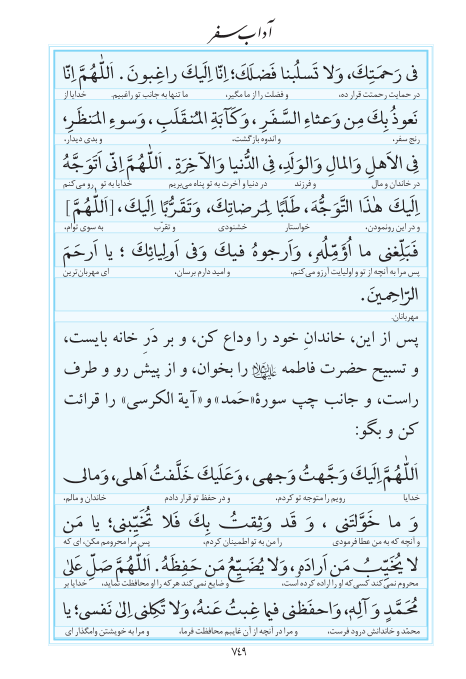 آداب سفر
فى رَحمَتِكَ، وَلا تَسلُبنا فَضلَكَ؛ اِنّا اِلَيكَ راغِبونَ. اَللّٰهُمَّ اِنّا
در حمایت رحمتت قرار ده، و فضلت را از ما مگیر، ما تنها به جانب تو راغبیم. خدایا از
نَعوذُ بِكَ مِن وَعثاءِ السَّفَرِ، وَكَآبَةِ المُنقَلَبِ، وَسوءِ المَنظَرِ،
رنج سفر، و اندوه بازگشت، و بدی دیدار،
فِى الاَهلِ وَالمالِ وَالوَلَدِ، فِى الدُّنيا وَالآخِرَةِ. اَللّٰهُمَّ اِنّى اَتَوَجَّهُ
در خاندان و مال و فرزند در دنیا و آخرت به تو پناه می‌بریم خدایا به تو رو می‌کنم
اِلَيكَ هٰذَا التَّوَجُّهَ، طَلَبًا لِمَرضاتِكَ، وَتَقَرُّبًا اِلَيكَ، [اَللّٰهُمَّ]
و در این رونمودن، خواستار خشنودی و تقرب به سوی توام،
فَبَلِّغنى ما اُؤَمِّلُهُ، وَاَرجوهُ فيكَ وَفى اَولِيائِكَ؛ يا اَرحَمَ
پس مرا به آنچه از تو و اولیایت آرزو می‌کنم، و امید دارم برسان، ای مهربان‌ترین
الرّاحِمينَ.
مهربانان.
پس از این، خاندانِ خود را وداع کن، و بر دَرِ خانه بایست،
و تسبیح حضرت فاطمه را بخوان، و از پیش رو و طرف
راست، و جانب چپ سورهٔ «حَمد» و «آیة الکرسی» را قرائت
کن و بگو:
اَللّٰهُمَّ اِلَيكَ وَجَّهتُ وَجهى، وَعَلَيكَ خَلَّفتُ اَهلى، وَمالى
خدایا رویم را متوجه تو کردم، و در حفظ تو قرار دادم خاندان و مالم،
وَ ما خَوَّلتَنى، وَ قَد وَثِقتُ بِكَ فَلا تُخَيِّبنى؛ يا مَن
و آنچه که به من عطا فرمودی را من به تو اطمینان کردم، پس مرا محرومم مکن، ای که
لا يُخَيِّبُ مَن اَرادَهُ، وَلا يُضَيِّعُ مَن حَفِظَهُ. اَللّٰهُمَّ صَلِّ عَلىٰ
محروم نمی‌کند کسی که او را اراده کرده است، و ضایع نمی‌کند هر که را او محافظت نماید، خدایا بر
مُحَمَّدٍ وَ آلِهِ، وَاحفَظنى فيما غِبتُ عَنهُ، وَلا تَكِلنى اِلىٰ نَفسى؛ يا
محمّد و خاندانش درود فرست، و مرا در آنچه از آن غایبم محافظت فرما، و مرا به خویشتن وامگذار ای
٧٤٩